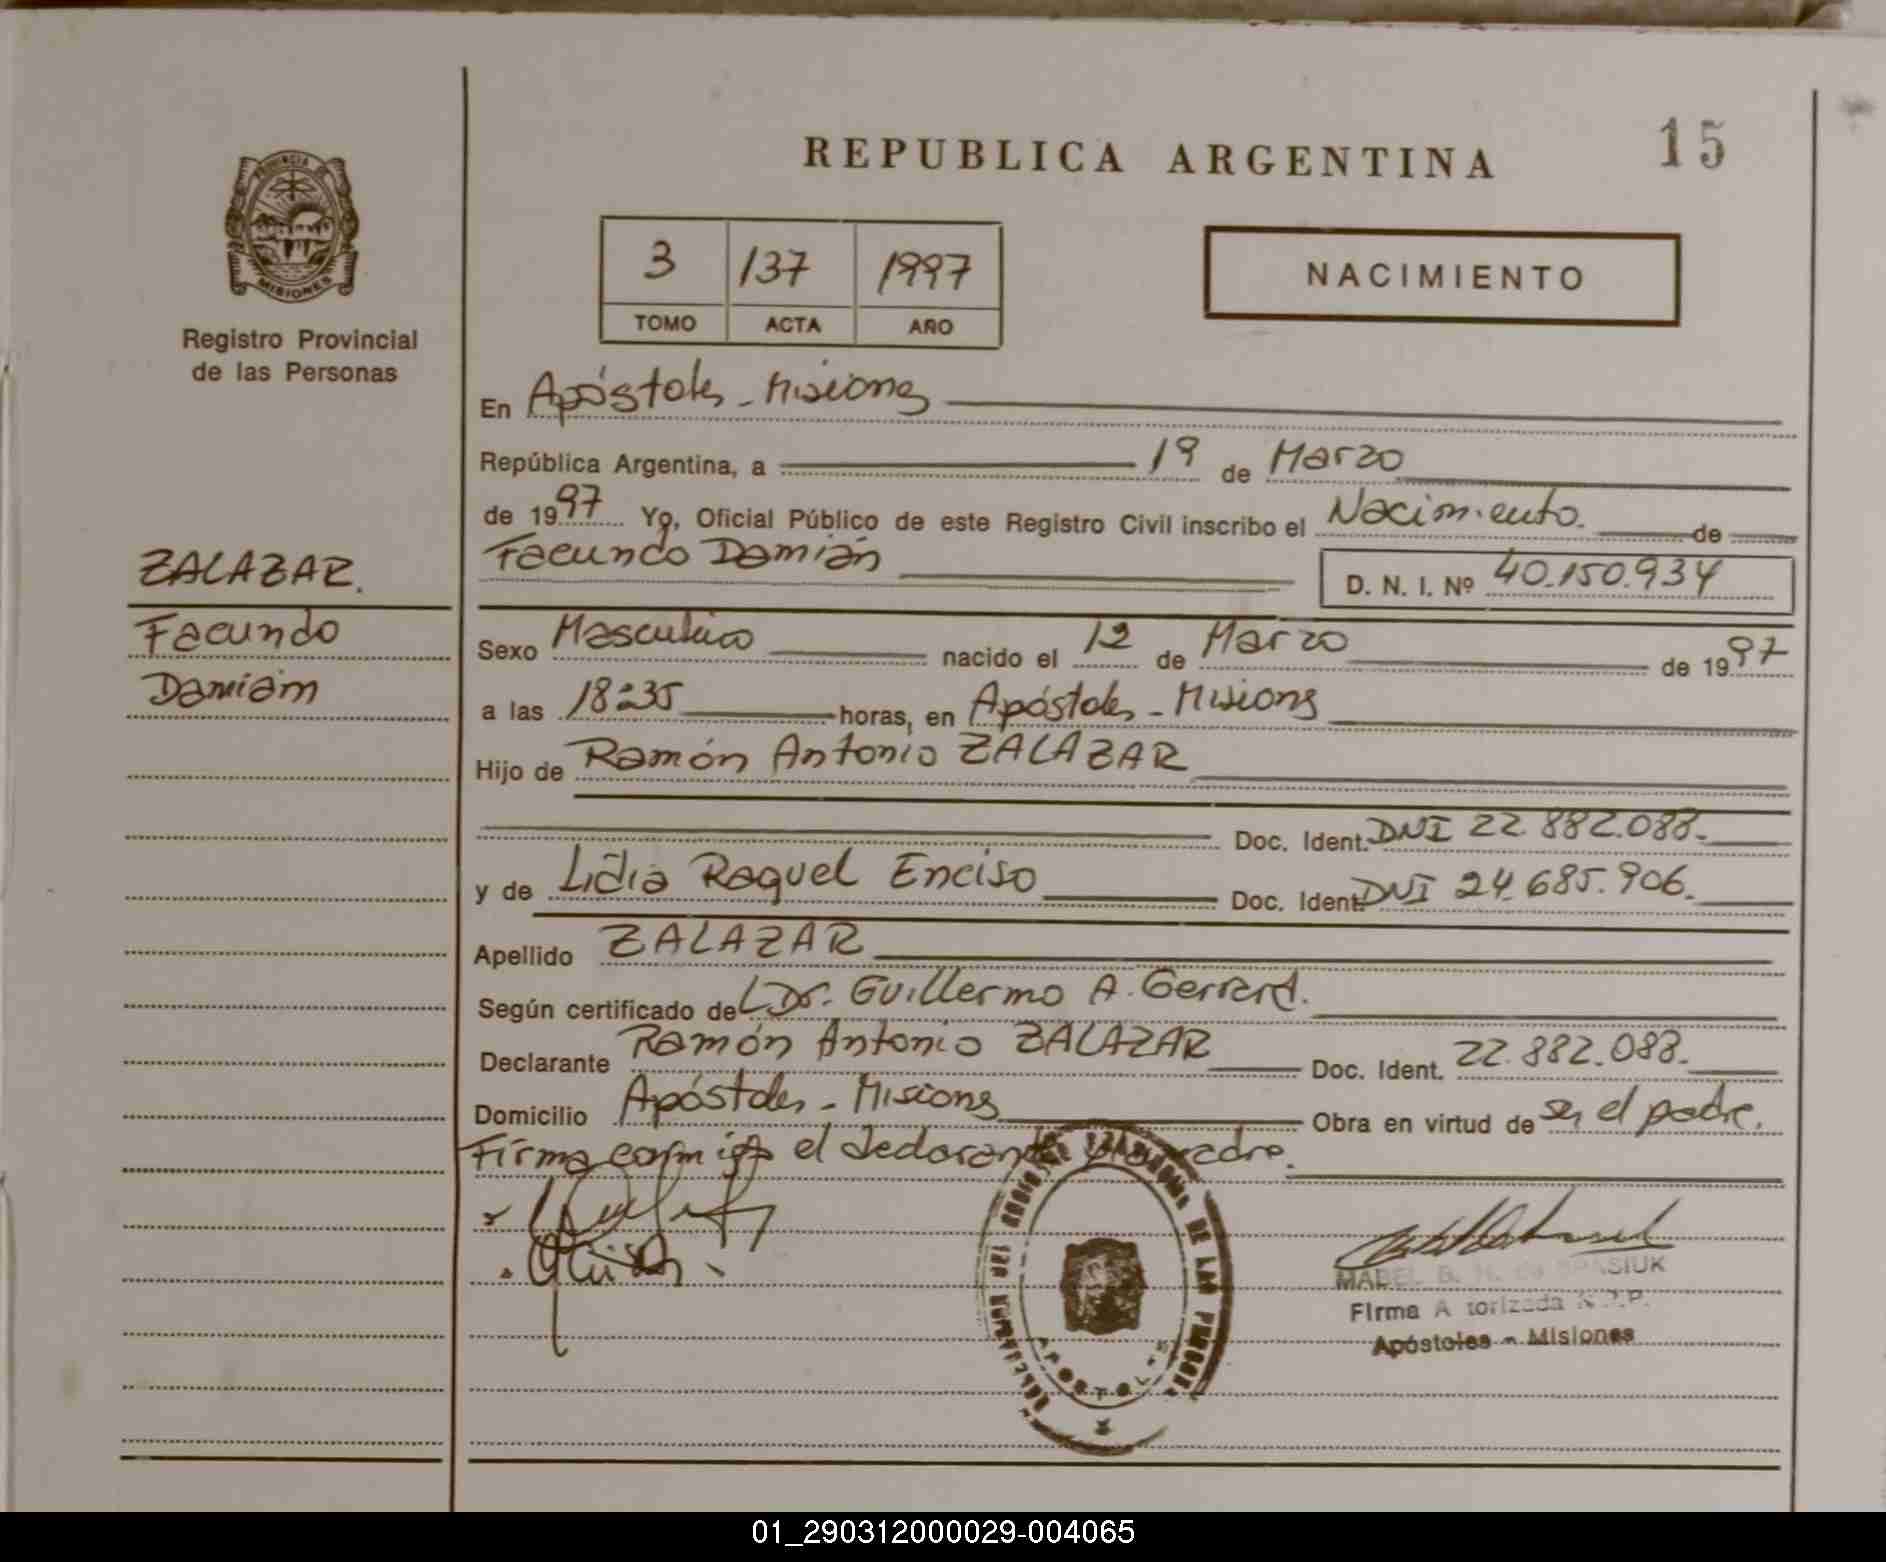 REPUBLICA ARGENTINA
15
PROVINCIA
MISIONES
Registro Provincial
de las Personas
3 137 1997
TOMO ACTA AÑO
NACIMIENTO
En Apóstoles - Misiones
República Argentina, a 19 de Marzo
de 1997 Yo, Oficial Público de este Registro Civil inscribo el Nacimiento. de
Facundo Damián
D. N. I. Nº 40.150.934
ZALAZAR.
Facundo
Damián
Sexo Masculino nacido el 12 de Marzo de 1997
a las 18:35 horas, en Apóstoles - Misiones
Hijo de Ramón Antonio ZALAZAR
Doc. Ident. DNI 22.882.088.
y de Lidia Raquel Enciso Doc. Ident. DNI 24.685.906.
Apellido ZALAZAR
Según certificado de Dr. Guillermo A. Gerrard.
Declarante Ramón Antonio ZALAZAR Doc. Ident. 22.882.088.
Domicilio Apóstoles - Misiones Obra en virtud de ser el padre.
Firma conmigo el declarante y la madre.
DE LAS
MABEL B. H. de SPASIUK
Firma Autorizada R.P.P.
Apóstoles - Misiones
01_290312000029-004065